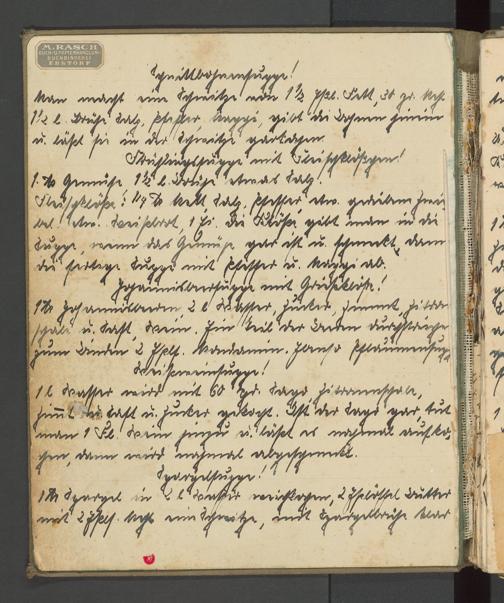 M. RASCH
BUCH- U. PAPIERHANDLUNG
BUCHBINDEREI
EBSTORF
Schnittbohnensuppe!
Man macht eine Schwitze von 1 ½ Eßl. Fett, 30 gr. Mehl
1 ½ l. Brühe Salz, Pfeffer Maggi, gibt die Bohnen hinein
u. läßt sie in der Schwitze garkochen.
Frühlingssuppe mit Fleischklößchen!
1 ℔ Gemüse, 1 ½ l. Brühe etwas Salz!
Fleischklöße: ¼ ℔ Mett Salz, Pfeffer etw. geriebene Zwie
bel etw. Weißbrot, 1 Ei. Die Klöße gibt man in die
Suppe, wenn das Gemüse gar ist u. schmeckt dann
die fertige Suppe mit Pfeffer u. Maggi ab.
Johannisbeersuppe mit Grießklöße!
1 ℔ Johannisbeeren, 2 l Wasser, Zucker, Zimmt, Zitron
schale u. Saft, Wein. Ein Teil der Beeren durchstreichen
zum Binden 2 Eßl. Mondamin. Ebenso Pflaumensuppe
Weißweinsuppe!
1 l Wasser wird mit 60 gr. Sago Zitronenschale,
Zimmt Saft u. Zucker gekocht. Ist der Sago gar, tut
man 1 Fl. Wein hinzu u. läßt es nochmal aufko
chen, dann wird nochmal abgeschmeckt.
Spargelsuppe!
1 ℔ Spargel in 2 l Wasser weichkochen, 2 Eßlöffel Butter
mit 2 Eßl. Mehl eine Schwitze, mit Spargelbrühe klar